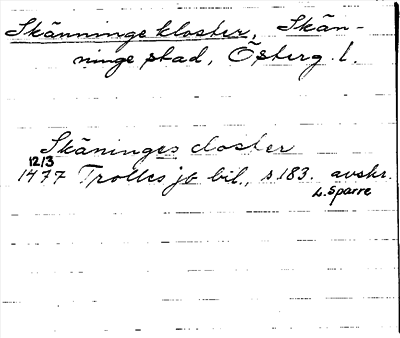 Skänninge kloster, Skän-
ninge stad, Österg. l.
Skäninges closter
12/3
1477 Trolles jb bil., s 183. avskr.
L. Sparre